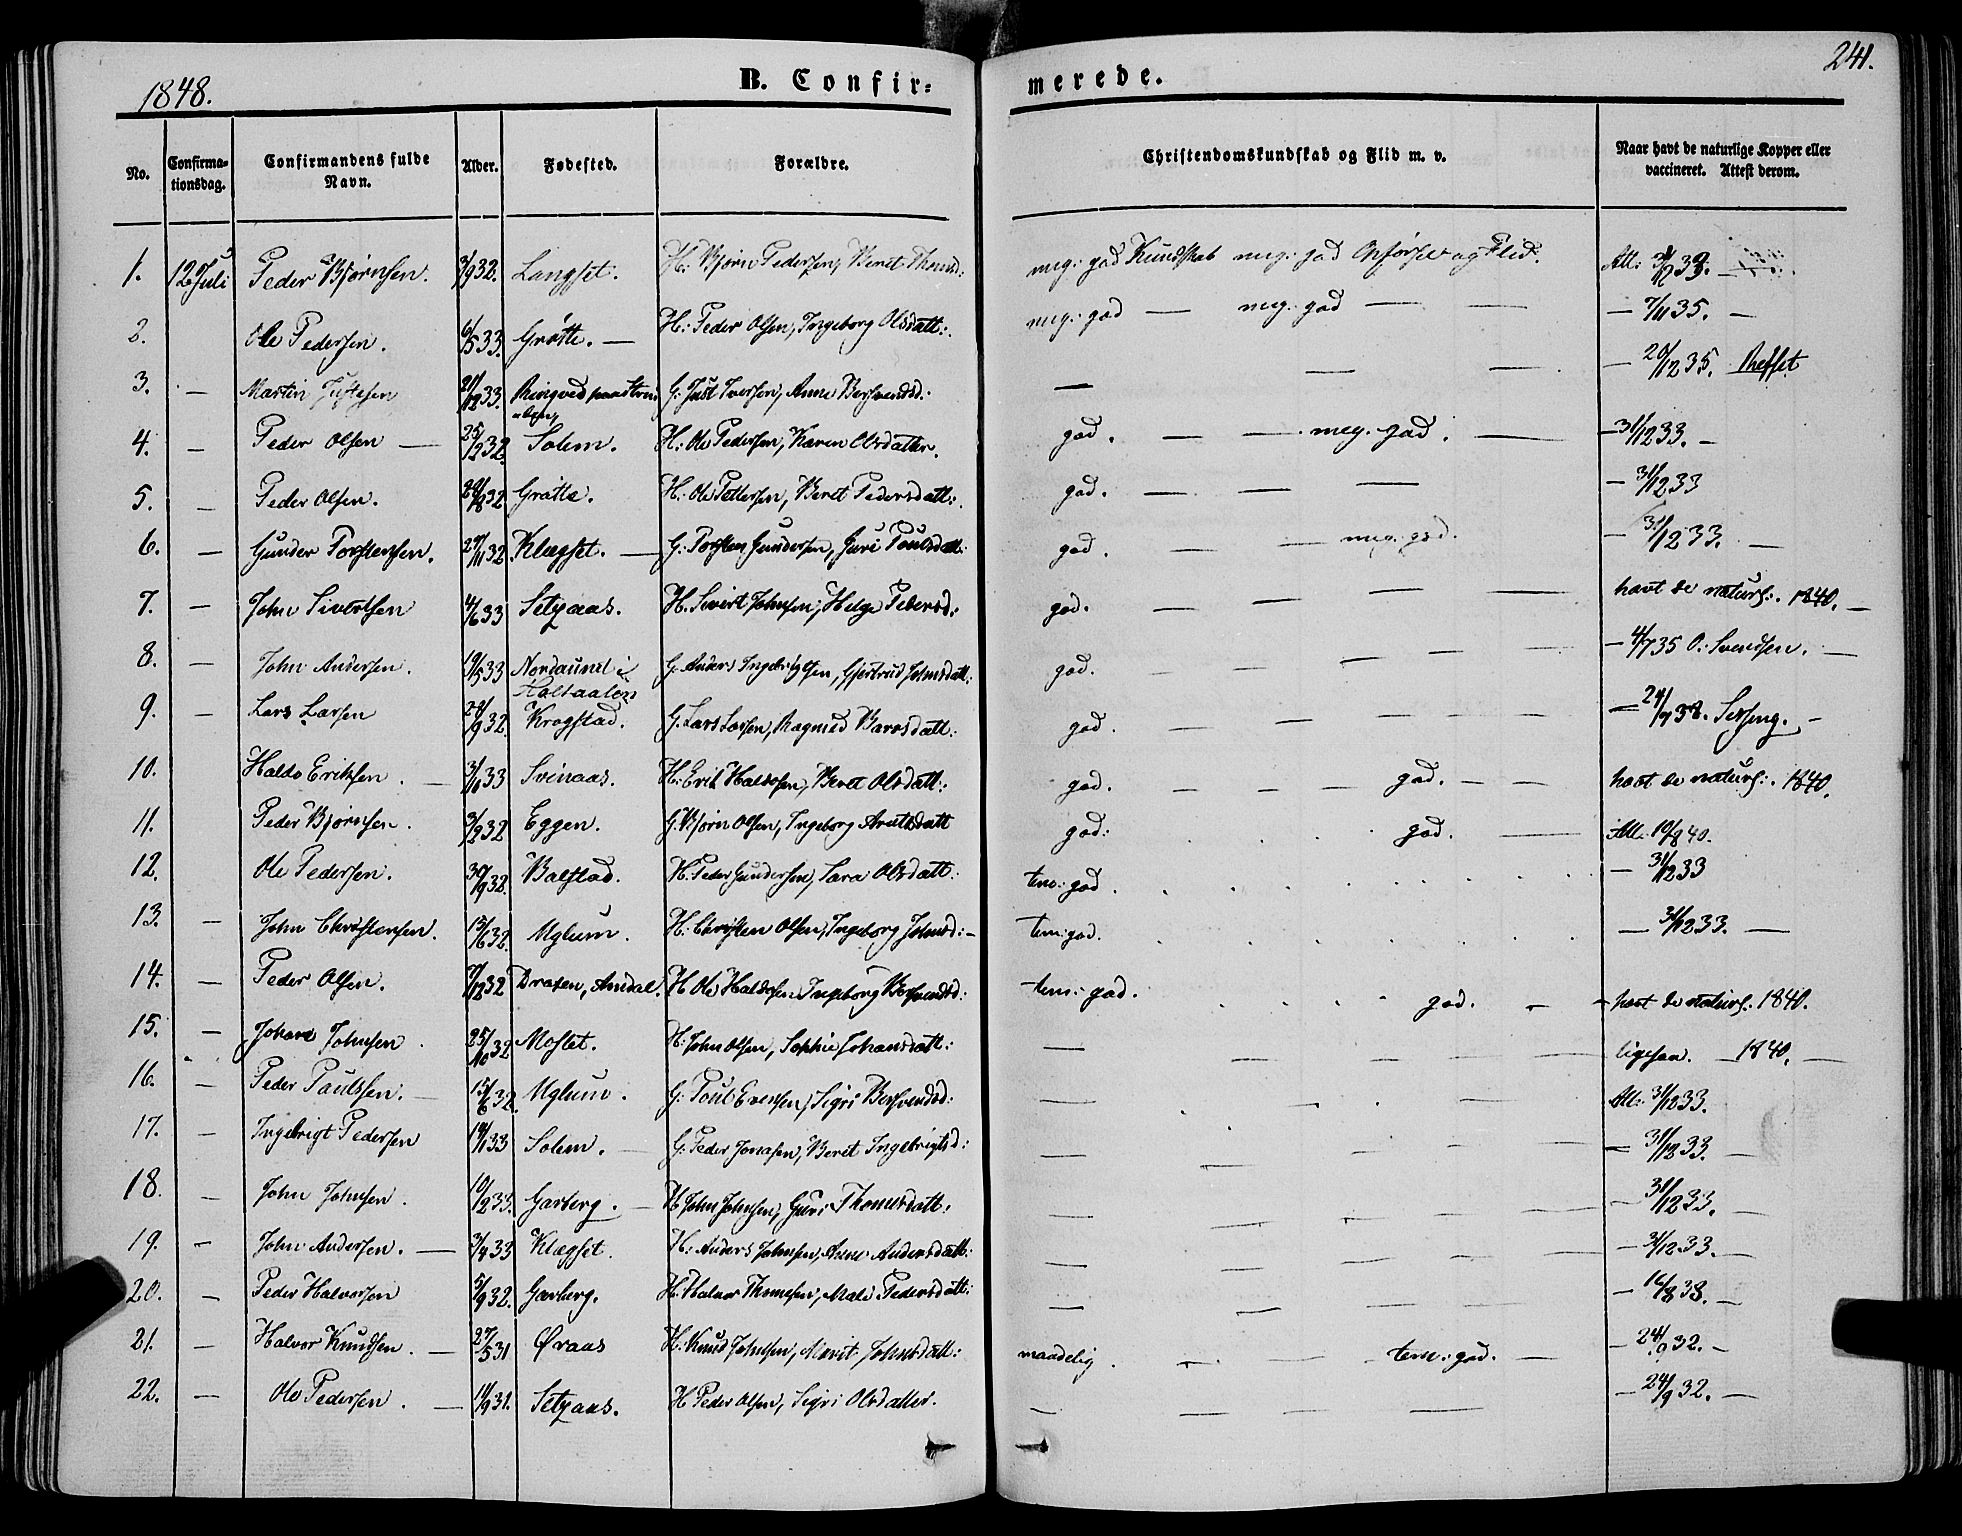 1848.
B. Confir=
merede.
241.
No.
Confirma-
tionsdag.
Confirmandens fulde
Navn.
Alder.
Fødested.
Forældre.
Christendomskundskab og Flid m. v.
Naar havt de naturlige Kopper eller
vaccineret. Attest derom.
1. 12 Juli Peder Bjørnsen. 3/9 32. Langset. H: Bjørn Pedersen, Beret Thomd: meg: god Kundskab meg: god Opførsel og Flid. Att:
2. Ole Pedersen. 6/5 33. Grøtte. — H: Peder Olsen, Ingeborg Olsdatt: meg: god — meg: god — — — 7/11 35. —
3. — Martin Justesen 33. G: Just Iversen, Anne Berhvendsd: — — — — 20/12 35.
4. — Peder Olsen — 25/2 32. Solem. H: Ole Pedersen, Karen Olsdatter. god. — — meg. god. — — 31/12 33. —
5. — Peder Olsen. 32 Grøtte. H: Ole Pettersen, Beret Pedersdatt: god. — — — — 31/12 33
6. — Gunder Torstensen. 27/11 32 Klægset. — G: Torsten Gundersen, Guri Poulsdatt: god. — — meg. god. — 31/12 33. —
7. — John Sivertsen 4/6 33 Setsaas. H. Sivert Johnsen, Helge Pedersd: god. — — — — havt de naturl:. 1840. —
8. — John Andersen. 19/5 33 Nordaunet i
Holtaalen G. Anders Ingebrigtsen, Gjertrud Johnsdatt: god. — — — — — 4/7 35 O. Svendsen. —
9. — Lars Larsen 32. Krogstad. G. Lars Larsen, Ragnild Baarsdatt: god. — — — — — 24/7 38. —
10. Haldo Eriksen. — 3/1 33 Svinaas. H: Erik Haldosen, Beret Olsdatt: god. — — — god. — — havt de naturl:. 1840.
11. Peder Bjørnsen. 3/2 32 Eggen. G. Bjørn Olsen, Ingeborg Arntsdatt god: god. — Att: 10/8 40.
12. Ole Pedersen. 30/9 32. Balstad. H. Peder Gundersen, Sara Olsdatt: tem: god. — 31/12 33
13. — John Christensen. 13/6 32. Uglum. H: Christen Olsen, Ingeborg Johnsd: — tem: god. — 31/12 33. —
14. — Peder Olsen. 7/12 32 Draxen, Amdal. H Ole Haldosen Ingeborg Berhvendsd: tem: god. god. — havt de naturl. 1840.
15. — Johan Johnsen. 25/10 32 Moslet. H: John Olsen, Sophie Johansdatt: — — — — — ligesaa. — 1840. —
16. — Peder Paulsen. — 15/6 32. Uglum. G: Poul Evensen, Sigri Berhvendsd: — — — Att: 31/12 33.
17. — Ingebrigt Pedersen 33 Solem. — G. Peder Jonasen, Beret Ingebrigtsd: — — — — 31/12 33. —
18. — John Johnsen. 10/2 33. Garberg. — H John Johnsen, Guri Thomsdatt: — — — — — 31/12 33. —
19. — John Andersen. — 3/4 33 Klægset. H: Anders Johnsen, Anne Andersdatt: — — — — — 31/12 33. —
20. — Peder Halvorsen 5/9 32. Garberg. H: Halvor Thomesen, Mali Pedersdatt: — — — — — 16/8 38. —
21. — Halvor Knudsen. — 27/5 31 Øraas H: Knud Johnsen, Marit Johnsdatt: maadelig. — — tem: god. — — 24/9 32. —
22. — Ole Pedersen. — 31. Setsaas. H Peder Olsen, Sigri Olsdatter. — — — — — 24/9 32. —